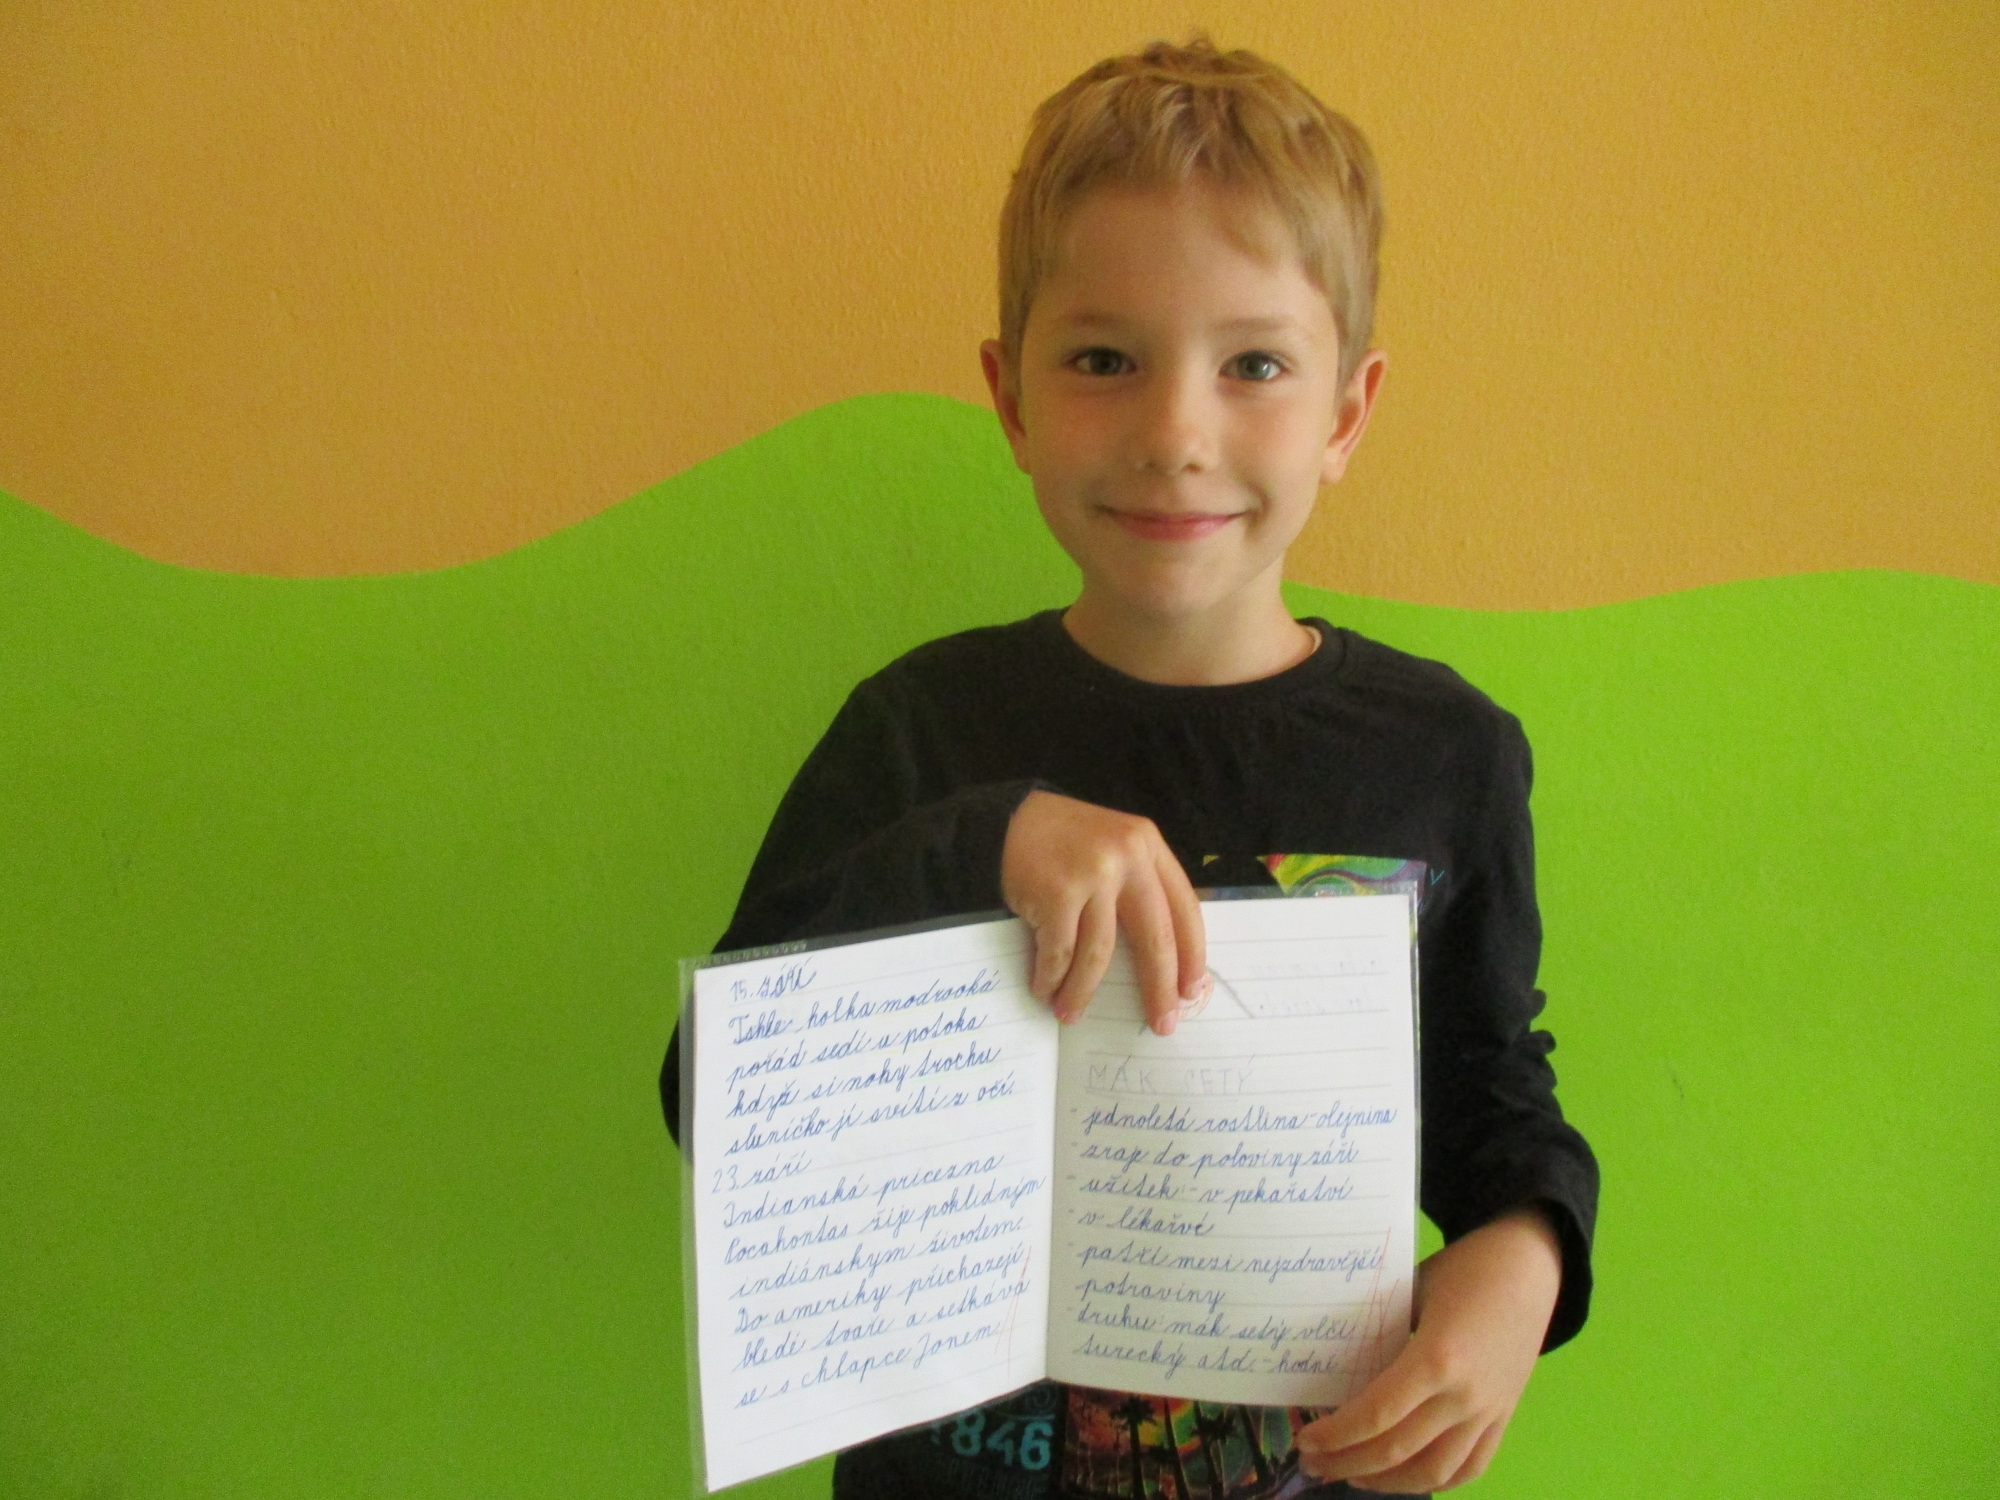 15. září
holka modrooká
pořád sedí u potoka
když si nohy trochu
sluníčko jí svítí z očí.
23. září
Indianská pricezna
Pocahontas žije poklidným
indiánskym životem.
Do ameriky přichazejí
bledé tvaře a setkáva
se s chlapce Jonem
MÁK SETÝ
- jednoletá rostlina - olejnina
- zraje do poloviny září
- užitek - v pekařství
- v lékařvé
- patří mezi nejzdravější
potraviny
- druhu: mák setý vlčí
turecký atd. - hodně
846